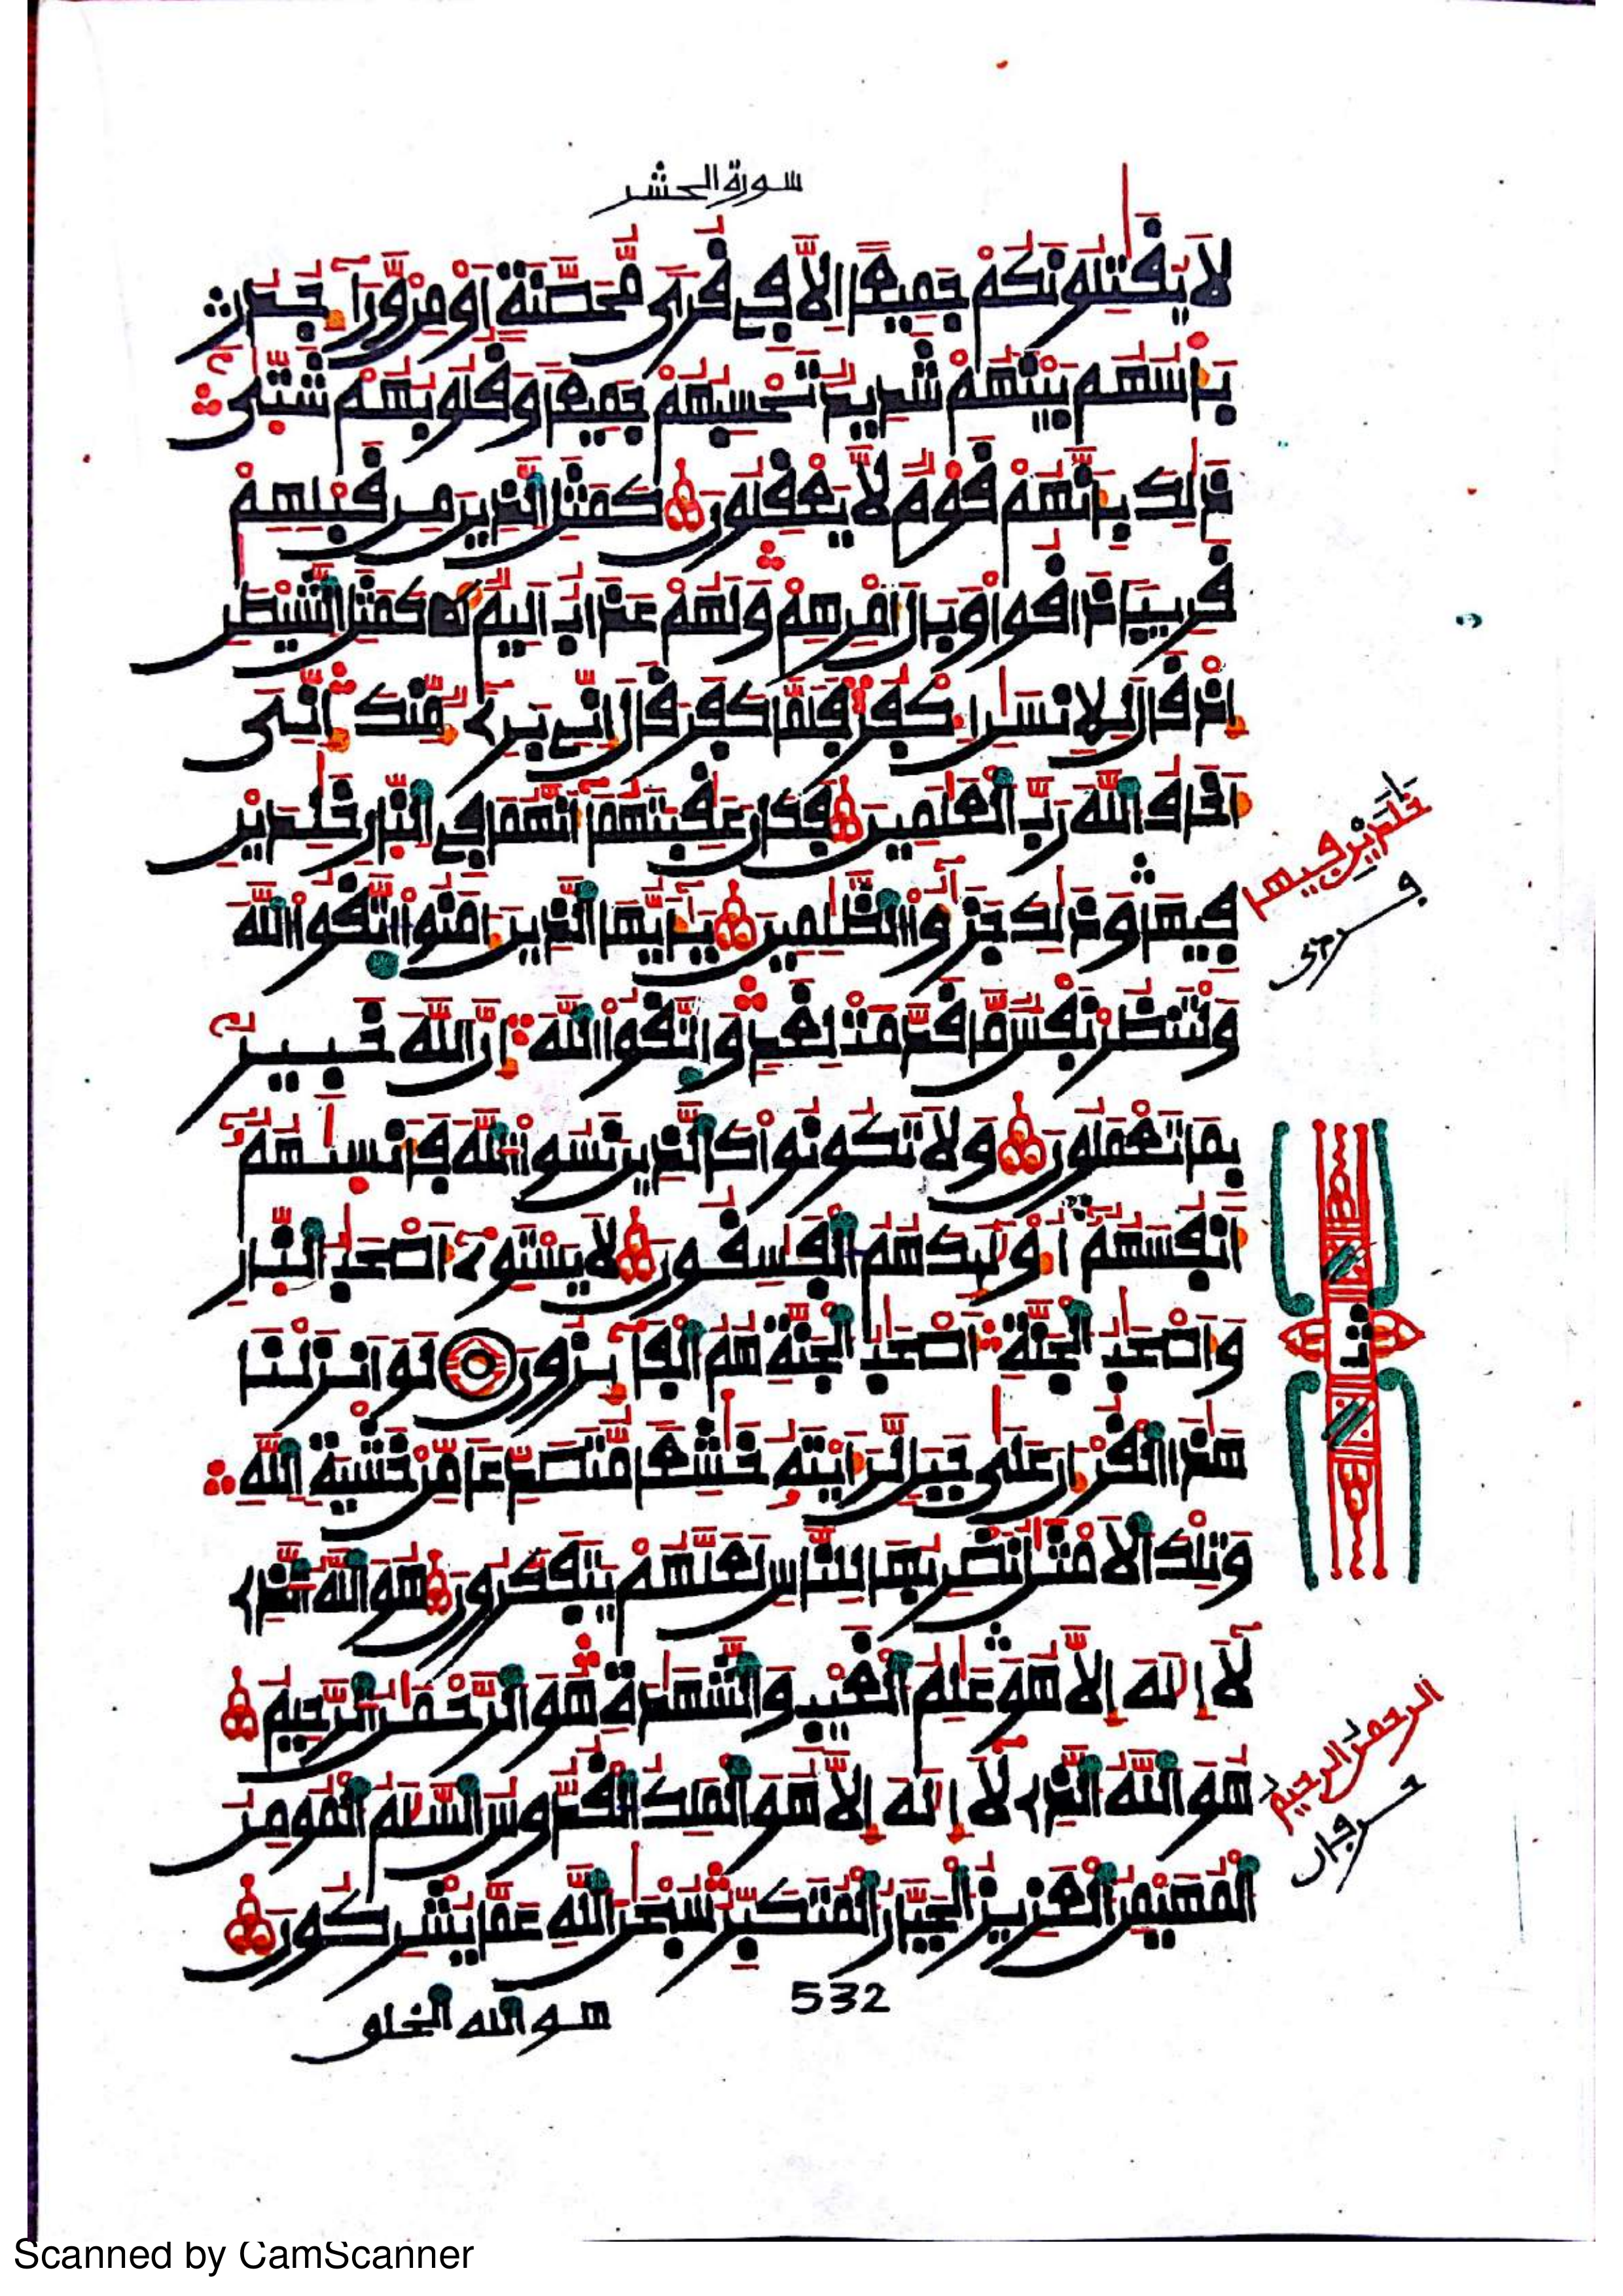 سورة الحشر
لَا يُقَٰتِلُونَكُمْ جَمِيعًا اِلَّا فِے قُرًى مُّحَصَّنَةٍ اَوْ مِنْ وَّرَآءِ جُدُرٍ
بَأْسُهُم بَيْنَهُمْ شَدِيدٌ تَحْسِبُهُمْ جَمِيعًا وَقُلُوبُهُمْ شَتّٰى
ذَٰلِكَ بِأَنَّهُمْ قَوْمٌ لَّا يَعْقِلُونَ كَمَثَلِ الذِينَ مِن قَبْلِهِمْ
قَرِيبًا ذَاقُوا وَبَالَ أَمْرِهِمْ وَلَهُمْ عَذَابٌ اَلِيمٌ كَمَثَلِ الشَّيْطَٰنِ
اِذْ قَالَ لِلِانسَٰنِ اكْفُرْ فَلَمَّا كَفَرَ قَالَ إِنِّے بَرِےءٌ مِّنكَ إِنِّىَ
أَخَافُ اللَّهَ رَبَّ الْعَٰلَمِينَ فَكَانَ عَٰقِبَتَهُمَا أَنَّهُمَا فِے النّارِ خَٰلِدَيْنِ
خَٰلِدَيْنِ فِيهَا
فِيهَا وَذَٰلِكَ جَزَٰٓؤُا الظَّٰلِمِينَ يَٰٓأَيُّهَا الذِينَ ءَامَنُوا اتَّقُوا اللَّهَ
وَلْتَنظُرْ نَفْسٌ مَّا قَدَّمَتْ لِغَدٍ وَاتَّقُوا اللَّهَ إِنَّ اللَّهَ خَبِيرٌ
بِمَا تَعْمَلُونَ وَلَا تَكُونُوا كَالذِينَ نَسُوا اللَّهَ فَأَنسَىٰهُمُ
أَنفُسَهُمُ أُوْلَٰٓئِكَ هُمُ الْفَٰسِقُونَ لَا يَسْتَوِےٓ أَصْحَٰبُ النّارِ
وَأَصْحَٰبُ الْجَنَّةِ أَصْحَٰبُ الْجَنَّةِ هُمُ الْفَآئِزُونَ لَوَ اَنزَلْنَا
هَٰذَا الْقُرْءَانَ عَلَىٰ جَبَلٍ لَّرَأَيْتَهُ خَٰشِعًا مُّتَصَدِّعًا مِّنْ خَشْيَةِ اللَّهِ
وَتِلْكَ الَامْثَٰلُ نَضْرِبُهَا لِلنَّاسِ لَعَلَّهُمْ يَتَفَكَّرُونَ هُوَ اللَّهُ الذِے
لَآ إِلَٰهَ إِلَّا هُوَ عَٰلِمُ الْغَيْبِ وَالشَّهَٰدَةِ هُوَ الرَّحْمَٰنُ الرَّحِيمُ
الرحمٰن الرحيم
هُوَ اللَّهُ الذِے لَآ إِلَٰهَ إِلَّا هُوَ الْمَلِكُ الْقُدُّوسُ السَّلَٰمُ الْمُومِنُ
الْمُهَيْمِنُ الْعَزِيزُ الْجَبَّارُ الْمُتَكَبِّرُ سُبْحَٰنَ اللَّهِ عَمَّا يُشْرِكُونَ
532
هو الله الخلو
Scanned by CamScanner